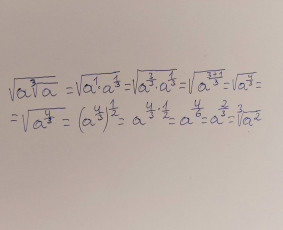 √(a∛a) = √(a¹·a^(1/3)) = √(a^(3/3)·a^(1/3)) = √(a^((3+1)/3)) = √(a^(4/3)) =
= √(a^(4/3)) = (a^(4/3))^(1/2) = a^(4/3·1/2) = a^(4/6) = a^(2/3) = ∛(a²)